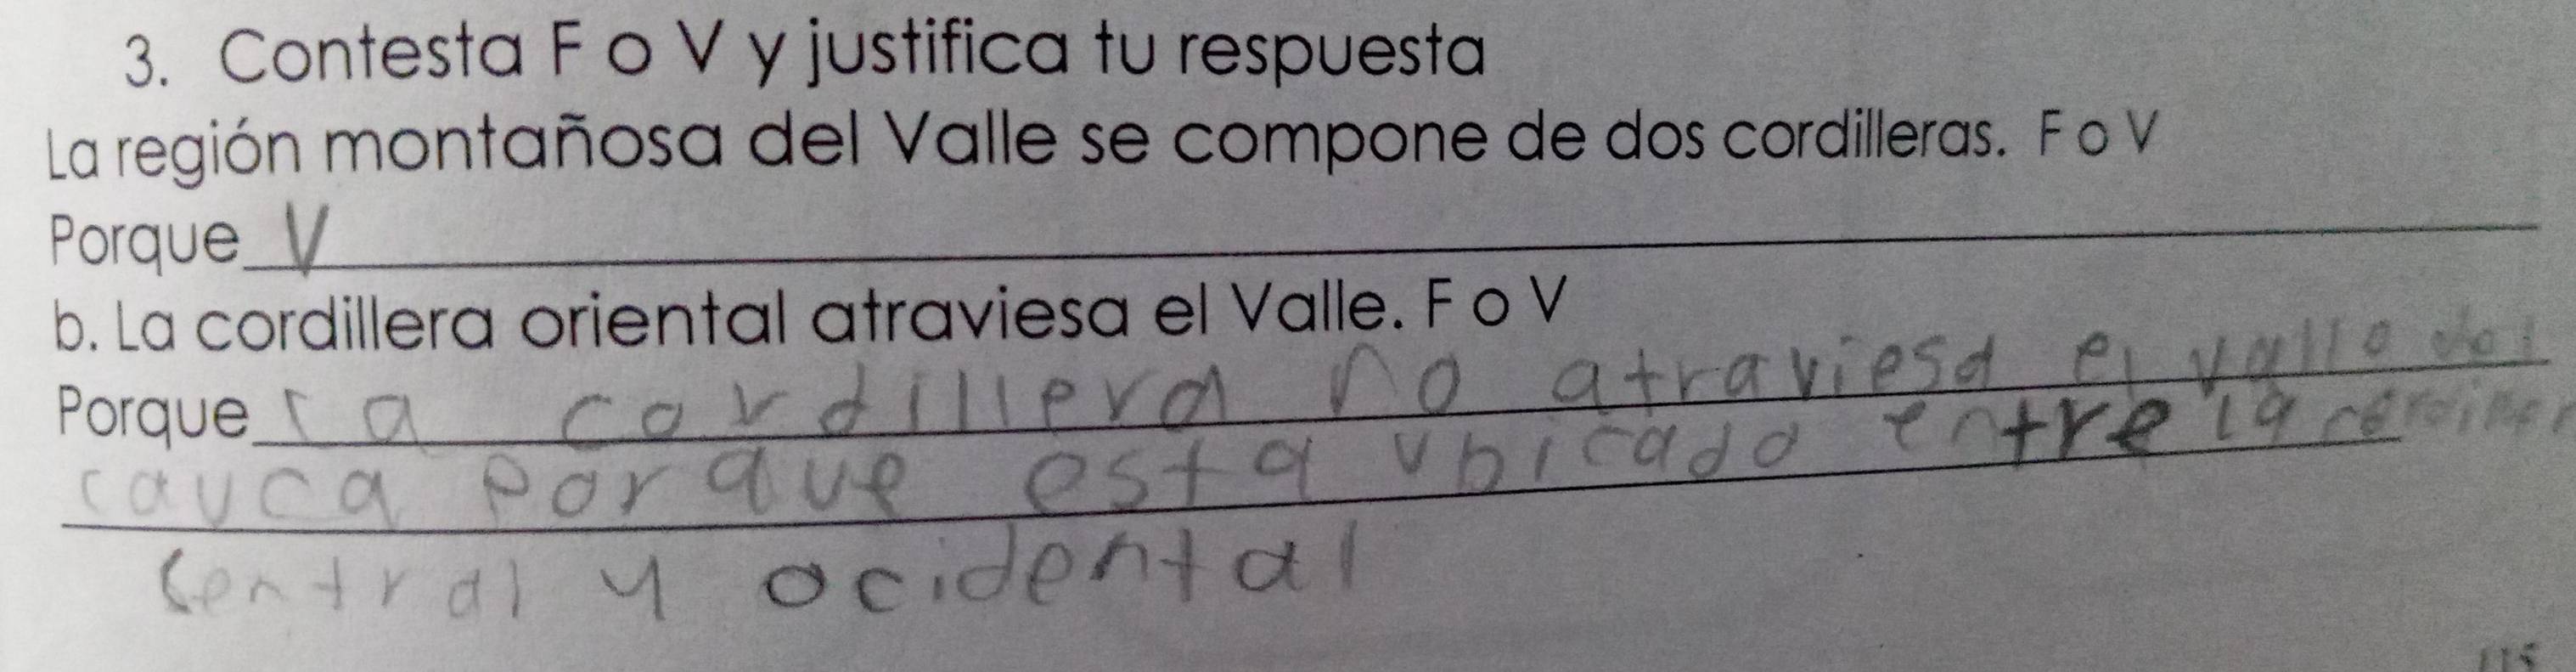 3. Contesta F o V y justifica tu respuesta
La región montañosa del Valle se compone de dos cordilleras. F o V
Porque V
b. La cordillera oriental atraviesa el Valle. F o V
Porque la cordillera no atraviesa el valle del
cauca porque esta ubicado entre la cordiller
sentral y ocidental